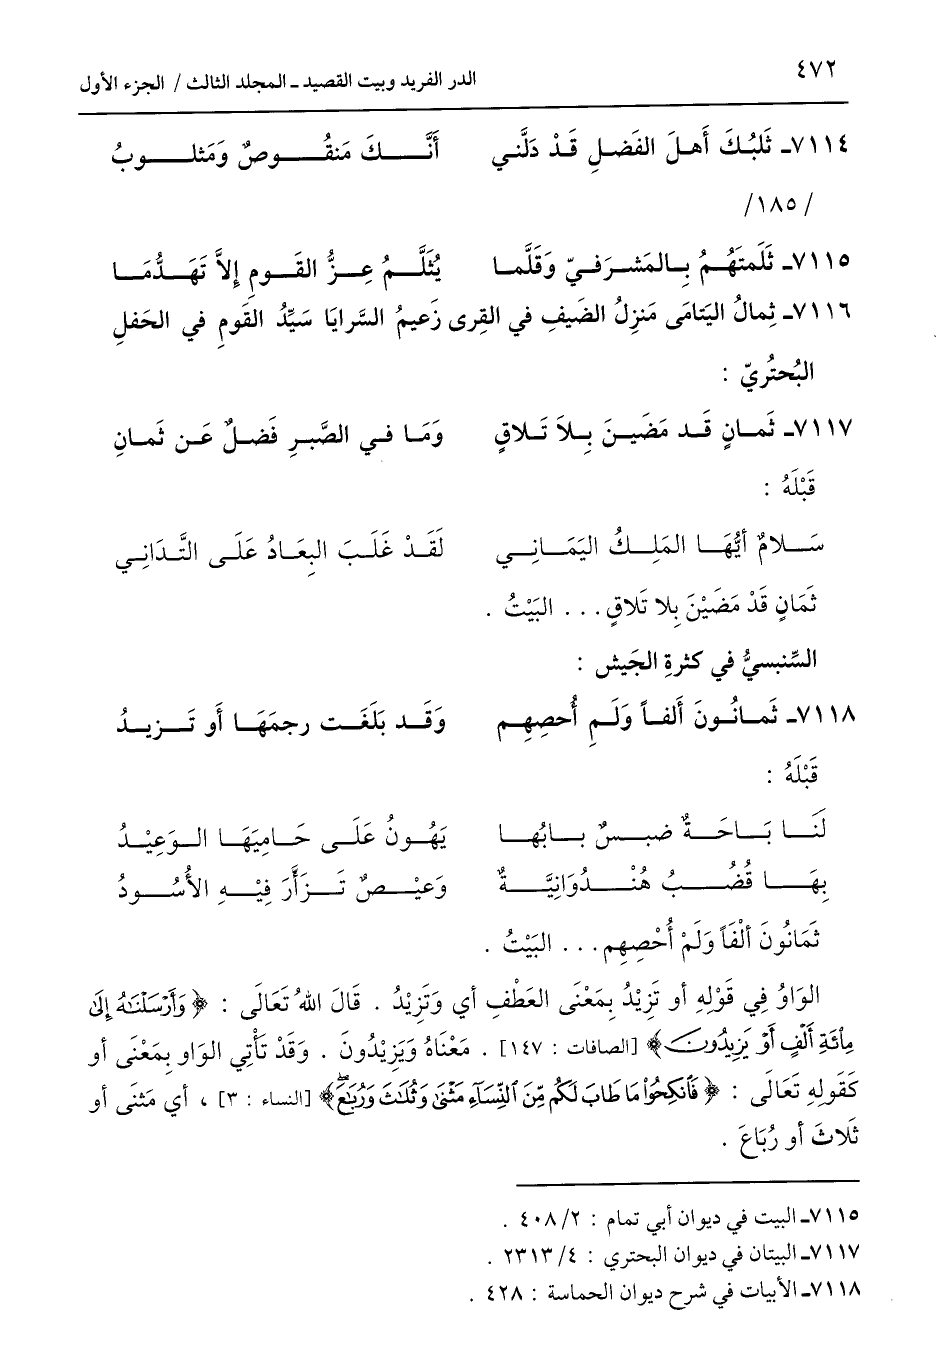 ٤٧٢ الدر الفريد وبيت القصيد ـ المجلد الثالث / الجزء الأول
٧١١٤ـ ثَلبُكَ أَهلَ الفَضلِ قَدْ دَلَّني أَنَّـــكَ مَنقُــوصٌ وَمَثلــوبُ
/ ١٨٥/
٧١١٥ـ ثَلَمتَهُــمُ بِـالمَشـرَفـيِّ وَقَلَّمـا يُثَلَّــمُ عِــزُّ القَــومِ إِلاَّ تَهَــدُّمَــا
٧١١٦ـ ثِمالُ اليَتامَى مَنزِلُ الضَيفِ في القِرى زَعيمُ السَّرايَا سَيِّدُ القَومِ في الحَفلِ
البُحتُريّ :
٧١١٧ـ ثَمـانٍ قَـد مَضَيـنَ بِـلاَ تَـلاقٍ وَمَـا فـي الصَّبـرِ فَضـلٌ عَـن ثَمـانِ
قَبْلَهُ :
سَــلامٌ أَيُّهَــا المَلِــكُ اليَمَـانـي لَقَـدْ غَلَـبَ البِعَـادُ عَلَـى التَّـدَانِـي
ثَمَانٍ قَدْ مَضَيْنَ بِلا تَلاقٍ . . . البَيْتُ .
السِّنبسيُّ في كثرةِ الجَيش :
٧١١٨ـ ثَمـانُـونَ أَلفـاً وَلَـمِ أُحصِهِـم وَقَـد بَلَغَـت رجمَهَـا أَو تَـزيـدُ
قَبْلَهُ :
لَنَــا بَـاحَــةٌ ضبـسٌ بـابُهـا يَهُـونُ عَلَـى حَـامِيَهَـا الـوَعِيْـدُ
بِهَــا قُضُــبُ هُنْــدُوَانِيَّــةٌ وَعيْــصٌ تَــزَأَرَ فِيْــهِ الأُسُــودُ
ثَمَانُونَ أَلْفَاً وَلَمْ أُحْصِهِم . . . البَيْتُ .
الوَاوُ فِي قَوْلِهِ أو تَزِيْدُ بِمَعْنَى العَطْفِ أي وَتَزِيْدُ . قَالَ اللهُ تَعَالَى : ﴿ وَأَرْسَلْنَٰهُ إِلَىٰ
مِا۟ئَةِ أَلْفٍ أَوْ يَزِيدُونَ ﴾ [الصافات : ١٤٧] . مَعْنَاهُ وَيَزِيْدُونَ . وَقَدْ تَأْتِي الوَاو بِمَعْنَى أو
كَقَولِهِ تَعَالَى : ﴿ فَٱنكِحُوا۟ مَا طَابَ لَكُم مِّنَ ٱلنِّسَآءِ مَثْنَىٰ وَثُلَٰثَ وَرُبَٰعَ ﴾ [النساء : ٣] ، أي مَثنَى أو
ثَلاثَ أو رُبَاعَ .
٧١١٥ـ البيت في ديوان أبي تمام : ٢/ ٤٠٨ .
٧١١٧ـ البيتان في ديوان البحتري : ٤/ ٢٣١٣ .
٧١١٨ـ الأبيات في شرح ديوان الحماسة : ٤٢٨ .